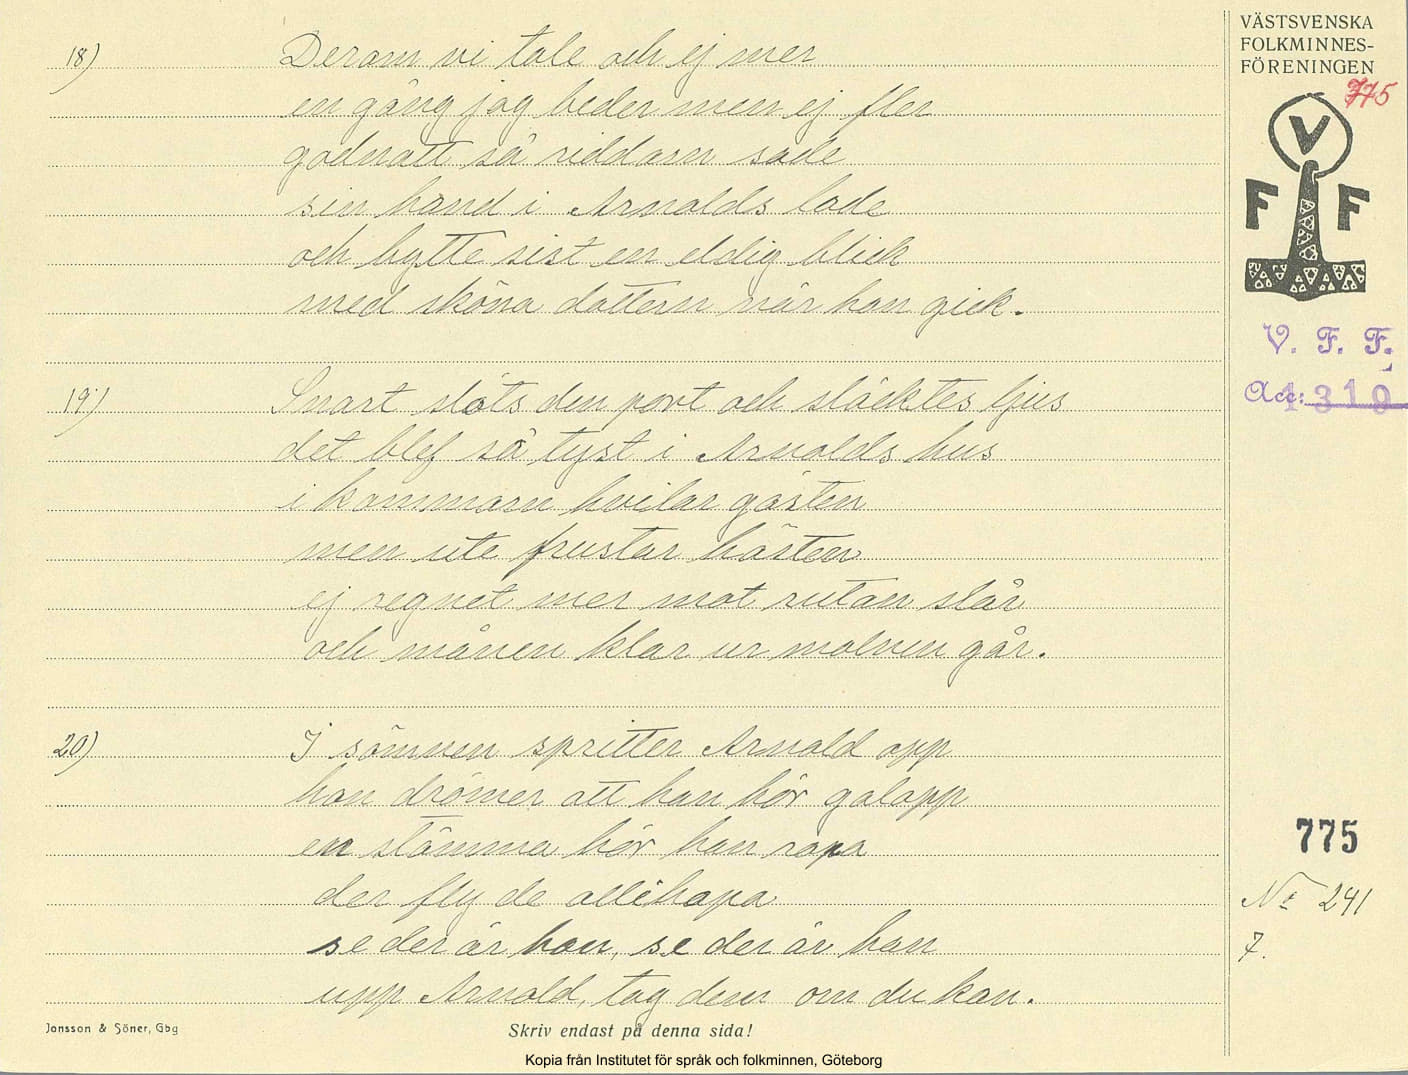 18) Derom vi tale och ej mer
en gång jag beder men ej fler
godnatt så riddarn sade
sin hand i Arnolds lade
och bytte sist en eldig blick
med sköna dottern när han gick.
19) Snart slöts den port och släcktes ljus
det blef så tyst i Arnolds hus
i kammarn hvilar gästen
men ute frustar hästen
ej regnet mer mot rutan slår
och månen klar ur molnen går.
20) I sömnen spritter Arnold opp
han drömer att han hör galopp
en stämma hör han ropa
der fly de allihopa
se der är han, se der är han
upp Arnold, tag dem om du kan.
Jonsson & Söner, Gbg
Skriv endast på denna sida!
Kopia från Institutet för språk och folkminnen, Göteborg
VÄSTSVENSKA
FOLKMINNES-
FÖRENINGEN
775
V
F F
V. F. F.
Acc: 1319
775
No 241
7.